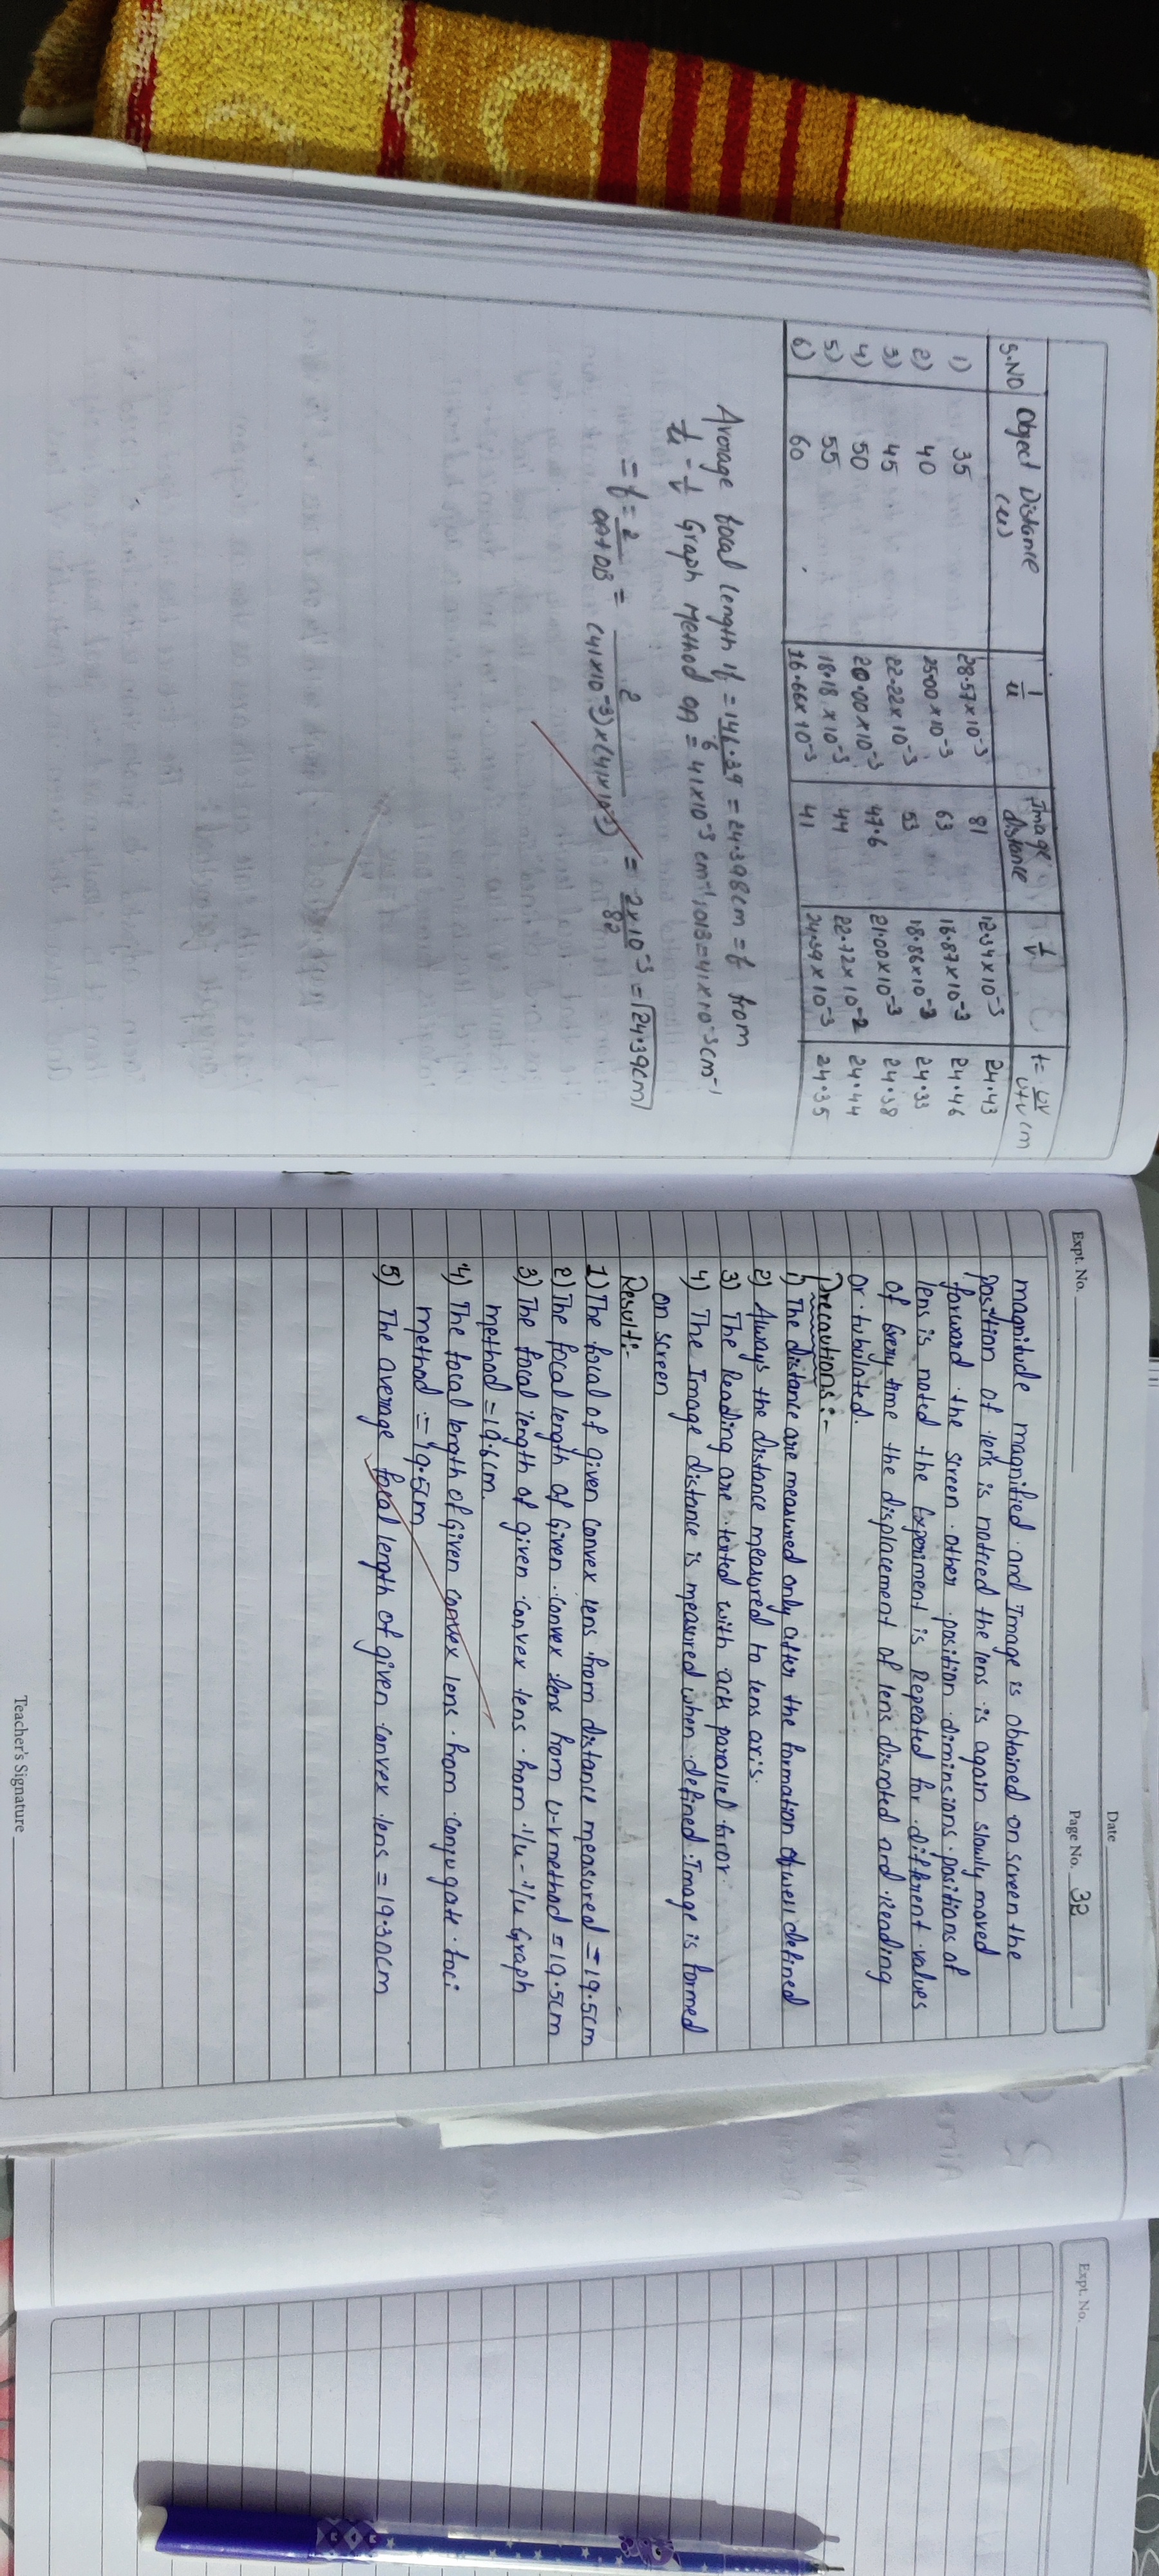 S.NO Object Distance (u) 1/u Image distance 1/v f= uv/u+v cm
1) 35 28.57x10⁻³ 81 12.34x10⁻³ 24.43
2) 40 25.00x10⁻³ 63 16.87x10⁻³ 24.46
3) 45 22.22x10⁻³ 53 18.86x10⁻³ 24.33
4) 50 20.00x10⁻³ 47.6 21.00x10⁻³ 24.38
5) 55 18.18x10⁻³ 44 22.72x10⁻² 24.44
6) 60 16.66x10⁻³ 41 24.39x10⁻³ 24.35
Average focal length if = 146.39/6 = 24.398cm = f from
1/u - 1/v Graph Method OA = 41x10⁻³ cm⁻¹, OB = 41x10⁻³cm⁻¹
= f = 2/OA+OB = 2/(41x10⁻³)x(41x10⁻³) = 2x10⁻³/82 = 24.39cm
Date
Expt. No. Page No. 32
magnitude magnified and Image is obtained on screen the
position of lens is noticed the lens is again slowly moved
forward the screen other position diminsions positions of
lens is noted the Experiment is Repeated for different values
of Every time the displacement of lens disnoted and Rending
or tubulated.
Precautions:-
1) The distance are measured only after the formation of well defined
2) Always the distance measured to lens axis.
3) The Reading are texted with acts parallel Error.
4) The Image distance is measured when defined Image is formed
on screen
Result:-
1) The focal of given convex lens from distance measured = 19.5cm
2) The focal length of given convex lens from u-v method = 19.5cm
3) The focal length of given convex lens from 1/u - 1/u Graph
method = 19.6cm.
4) The focal length of given convex lens from conjugate foci
method = 19.5cm
5) The average focal length of given convex lens = 19.30cm
Teacher's Signature
Expt. No.